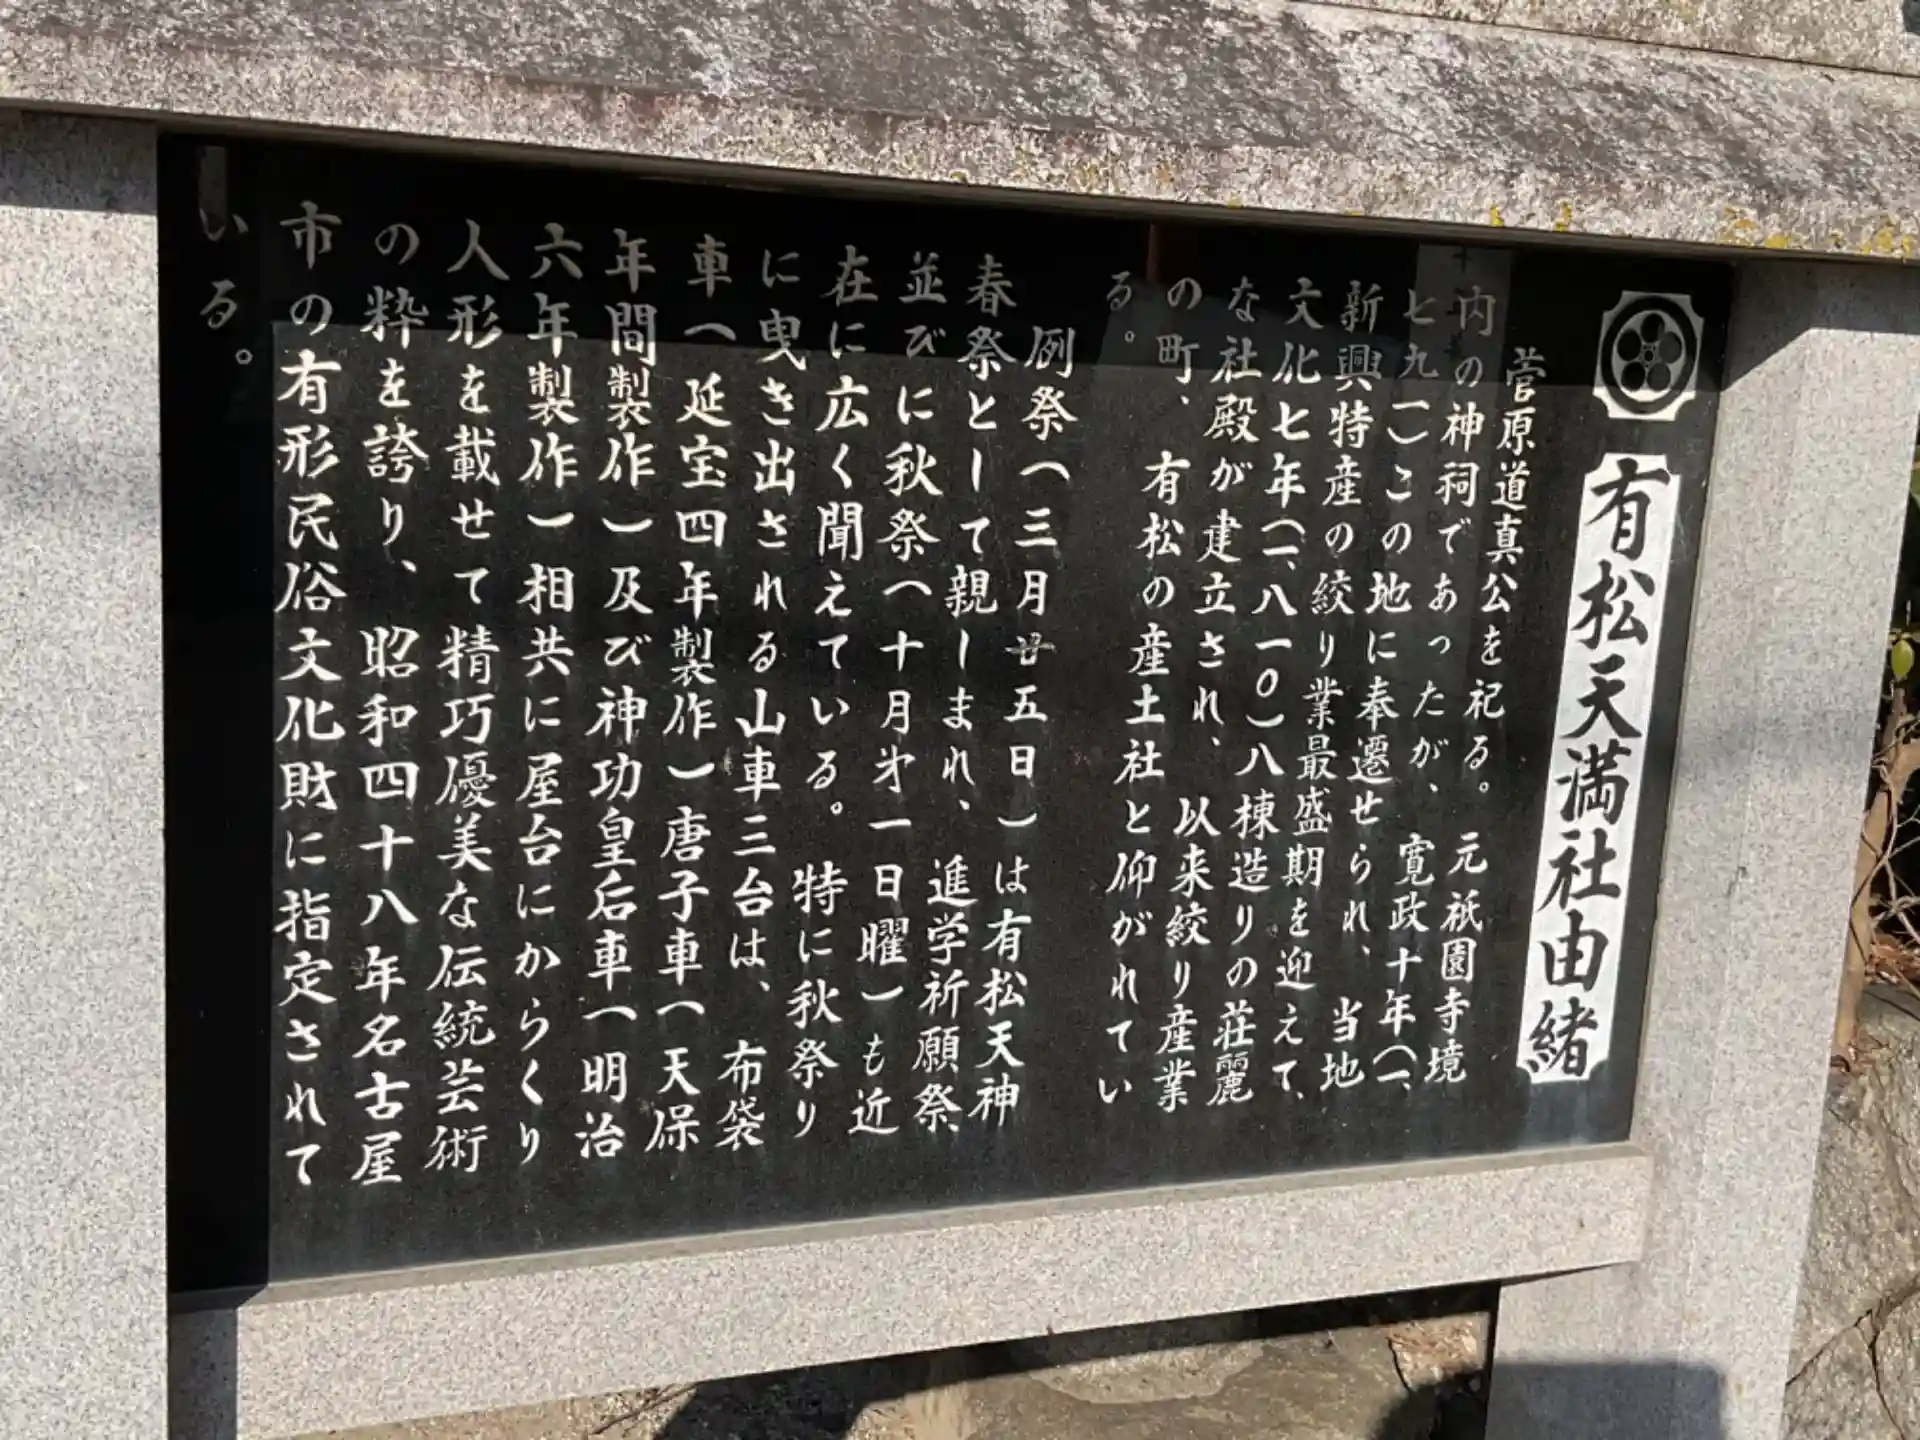 有松天満社由緒
菅原道真公を祀る。元祇園寺境
内の神祠であったが、寛政十年(一、
七九一)この地に奉遷せられ、当地
新興特産の絞り業最盛期を迎えて、
文化七年(一、八一〇)八棟造りの荘麗
な社殿が建立され、以来絞り産業
の町、有松の産土社と仰がれてい
る。
例祭(三月廿五日)は有松天神
春祭として親しまれ、進学祈願祭
並びに秋祭(十月㐧一日曜)も近
在に広く聞えている。特に秋祭り
に曳き出される山車三台は、布袋
車(延宝四年製作)唐子車(天保
年間製作)及び神功皇后車(明治
六年製作)相共に屋台にからくり
人形を載せて精巧優美な伝統芸術
の粋を誇り、昭和四十八年名古屋
市の有形民俗文化財に指定されて
いる。